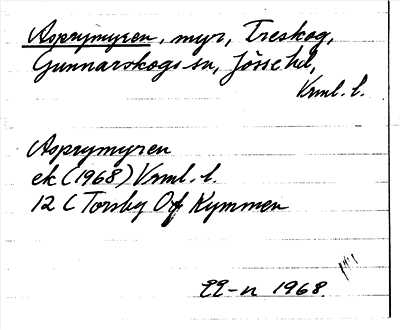 Asprymyren, myr, Treskog,
Gunnarskogs sn, Jösse hd,
Vrml. l.
Asprymyren
ek (1968) Vrml. l.
12 C Torsby Of Kymmen
EE-n 1968.